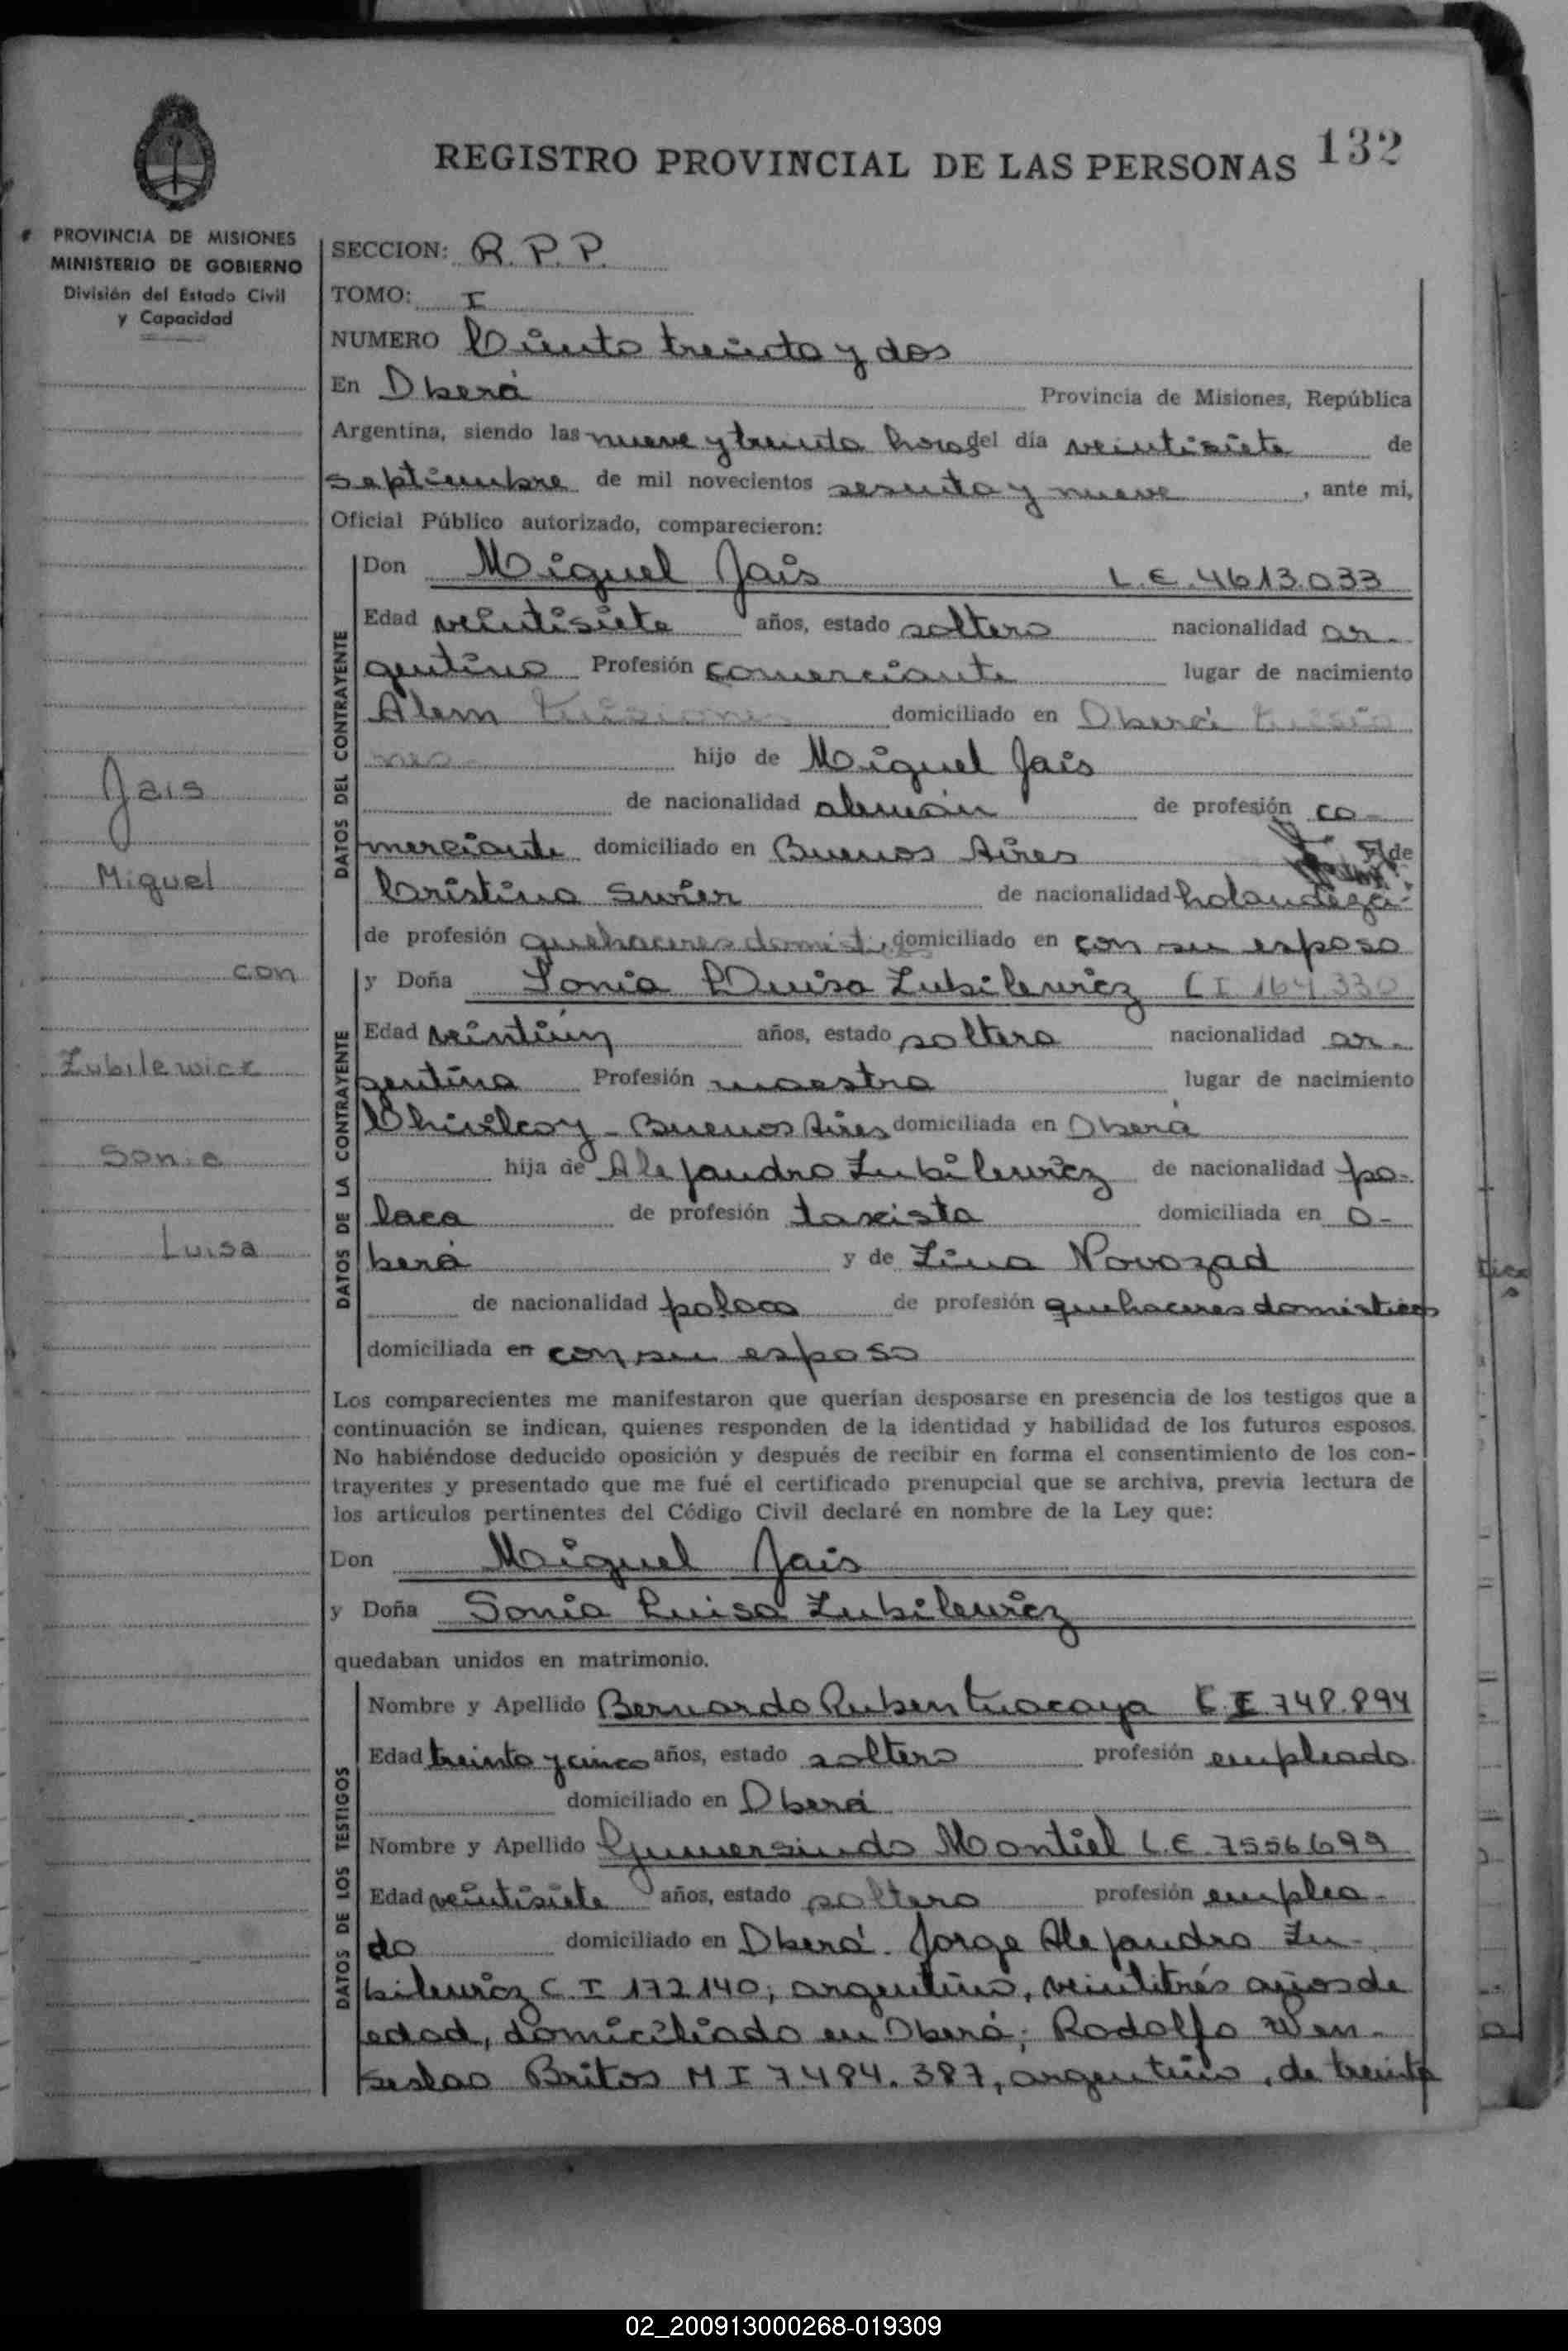 REGISTRO PROVINCIAL DE LAS PERSONAS 132
PROVINCIA DE MISIONES
MINISTERIO DE GOBIERNO
División del Estado Civil
y Capacidad
SECCION: R. P. P.
TOMO: I
NUMERO Ciento treinta y dos
En Oberá Provincia de Misiones, República
Argentina, siendo las nueve y treinta horas del día veintisiete de
septiembre de mil novecientos sesenta y nueve, ante mi,
Oficial Público autorizado, comparecieron:
DATOS DEL CONTRAYENTE
Don Miguel Jais L.E. 4613.033
Edad veintisiete años, estado soltero nacionalidad ar-
gentino Profesión comerciante lugar de nacimiento
Alem Misiones domiciliado en Oberá Misio
nes- hijo de Miguel Jais
de nacionalidad alemán de profesión co-
merciante domiciliado en Buenos Aires y de
Cristina Swier de nacionalidad holandeza-
de profesión quehaceres domésticos domiciliado en con su esposo
Jais
Miguel
con
Zubilewicz
Sonia
Luisa
DATOS DE LA CONTRAYENTE
y Doña Sonia Luisa Zubilewicz C I 164.330
Edad veintiún años, estado soltera nacionalidad ar-
gentina Profesión maestra lugar de nacimiento
Chivilcoy - Buenos Aires domiciliada en Oberá
hija de Alejandro Zubilewicz de nacionalidad po-
laca de profesión taxista domiciliada en O-
berá y de Zina Novozad
de nacionalidad polaca de profesión quehaceres domésticos
domiciliada en con su esposo
Los comparecientes me manifestaron que querían desposarse en presencia de los testigos que a
continuación se indican, quienes responden de la identidad y habilidad de los futuros esposos.
No habiéndose deducido oposición y después de recibir en forma el consentimiento de los con-
trayentes y presentado que me fué el certificado prenupcial que se archiva, previa lectura de
los artículos pertinentes del Código Civil declaré en nombre de la Ley que:
Don Miguel Jais
y Doña Sonia Luisa Zubilewicz
quedaban unidos en matrimonio.
DATOS DE LOS TESTIGOS
Nombre y Apellido Bernardo Ruben C. I 748.894
Edad treinta y cinco años, estado soltero profesión empleado
domiciliado en Oberá
Nombre y Apellido Gumersindo Montiel L.E. 7556699
Edad veintisiete años, estado soltero profesión emplea-
do domiciliado en Oberá. Jorge Alejandro Zu-
bilewicz C. I 172140; argentino, veintitrés años de
edad, domiciliado en Oberá; Rodolfo Wen-
seslao Britos M I 7.484.387, argentino, de treinta
02_200913000268-019309